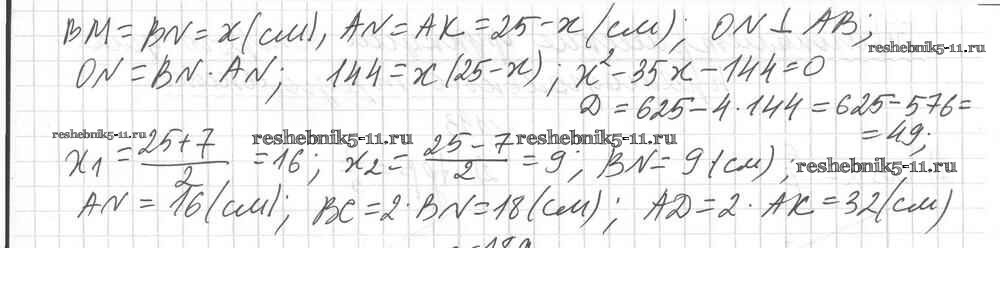 BM = BN = x (см), AN = AK = 25 - x (см); ON ⊥ AB;
reshebnik5-11.ru
ON = BN · AN; 144 = x (25 - x); x² - 35x - 144 = 0
D = 625 - 4 · 144 = 625 - 576 =
= 49;
reshebnik5-11.ru reshebnik5-11.ru reshebnik5-11.ru
x₁ = (25+7)/2 = 16; x₂ = (25-7)/2 = 9; BN = 9 (см);
reshebnik5-11.ru
AN = 16 (см); BC = 2 · BN = 18 (см); AD = 2 · AK = 32 (см)